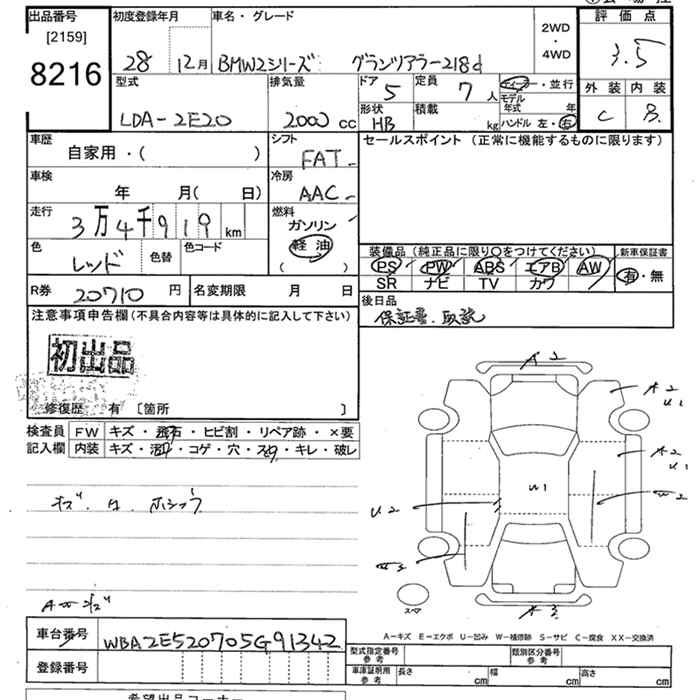 出品番号 初度登録年月 車名・グレード 評価点
[2159]
8216 28 12月 BMW2シリーズ グランツアラー218d 2WD・4WD 3.5
型式 排気量 ドア 定員 ディーラー・並行 外装 内装
LDA-2E20 2000cc 5 7人 モデル年式 年 C B
形状 積載
HB kg ハンドル 左・右
車歴 シフト セールスポイント (正常に機能するものに限ります)
自家用・( ) FAT
車検 冷房
年 月( 日) AAC
走行 燃料
3万4千919km ガソリン
軽油
色 色替 色コード ( )
レッド
装備品 (純正品に限り○をつけてください) 新車保証書
PS PW ABS エアB AW 有・無
SR ナビ TV カワ
R券 20710円 名変期限 月 日 後日品
保証書・取説
注意事項申告欄(不具合内容等は具体的に記入して下さい)
初出品
修復歴 有 [箇所 ]
検査員 FW キズ・飛石・ヒビ割・リペア跡・×要
記入欄 内装 キズ・汚れ・コゲ・穴・スレ・キレ・破レ
A2
A2
U1
A2
U1
U1
U2
W2
スペア
A3
A-キズ E-エクボ U-凹み W-補修跡 S-サビ C-腐食 XX-交換済
車台番号 WBA2E520705G91342
登録番号
型式指定番号 参考 類別区分番号 参考
車庫証明用 参考 長さ cm 幅 cm 高さ cm
希望出品コーナー